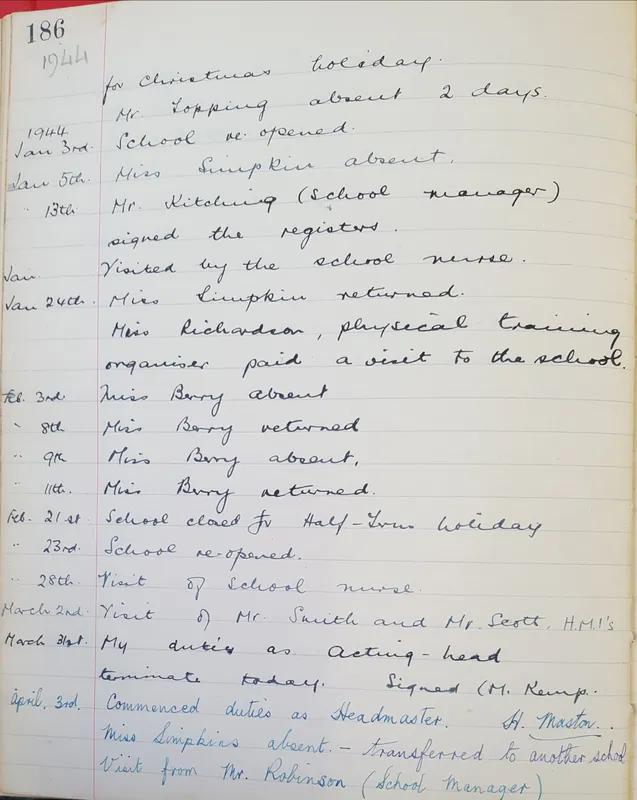 186
1944
for Christmas holiday.
Mr. Topping absent 2 days.
1944
Jan 3rd. School re-opened.
Jan 5th. Miss Simpkin absent.
" 13th Mr. Kitching (School manager)
signed the registers.
Jan. Visited by the school nurse.
Jan 24th. Miss Simpkin returned.
Miss Richardson, physical training
organiser paid a visit to the school.
Feb. 3rd Miss Berry absent
" 8th Miss Berry returned
" 9th Miss Berry absent,
" 11th. Miss Berry returned.
Feb. 21st. School closed for Half-Term holiday
" 23rd. School re-opened.
" 28th. Visit of School nurse.
March 2nd. Visit of Mr. Smith and Mr. Scott, H.M.I's
March 31st. My duties as Acting-head
terminate today. Signed (M. Kemp.
April, 3rd. Commenced duties as Headmaster. H. Maston.
Miss Simpkins absent. - transferred to another school
Visit from Mr. Robinson (School Manager)